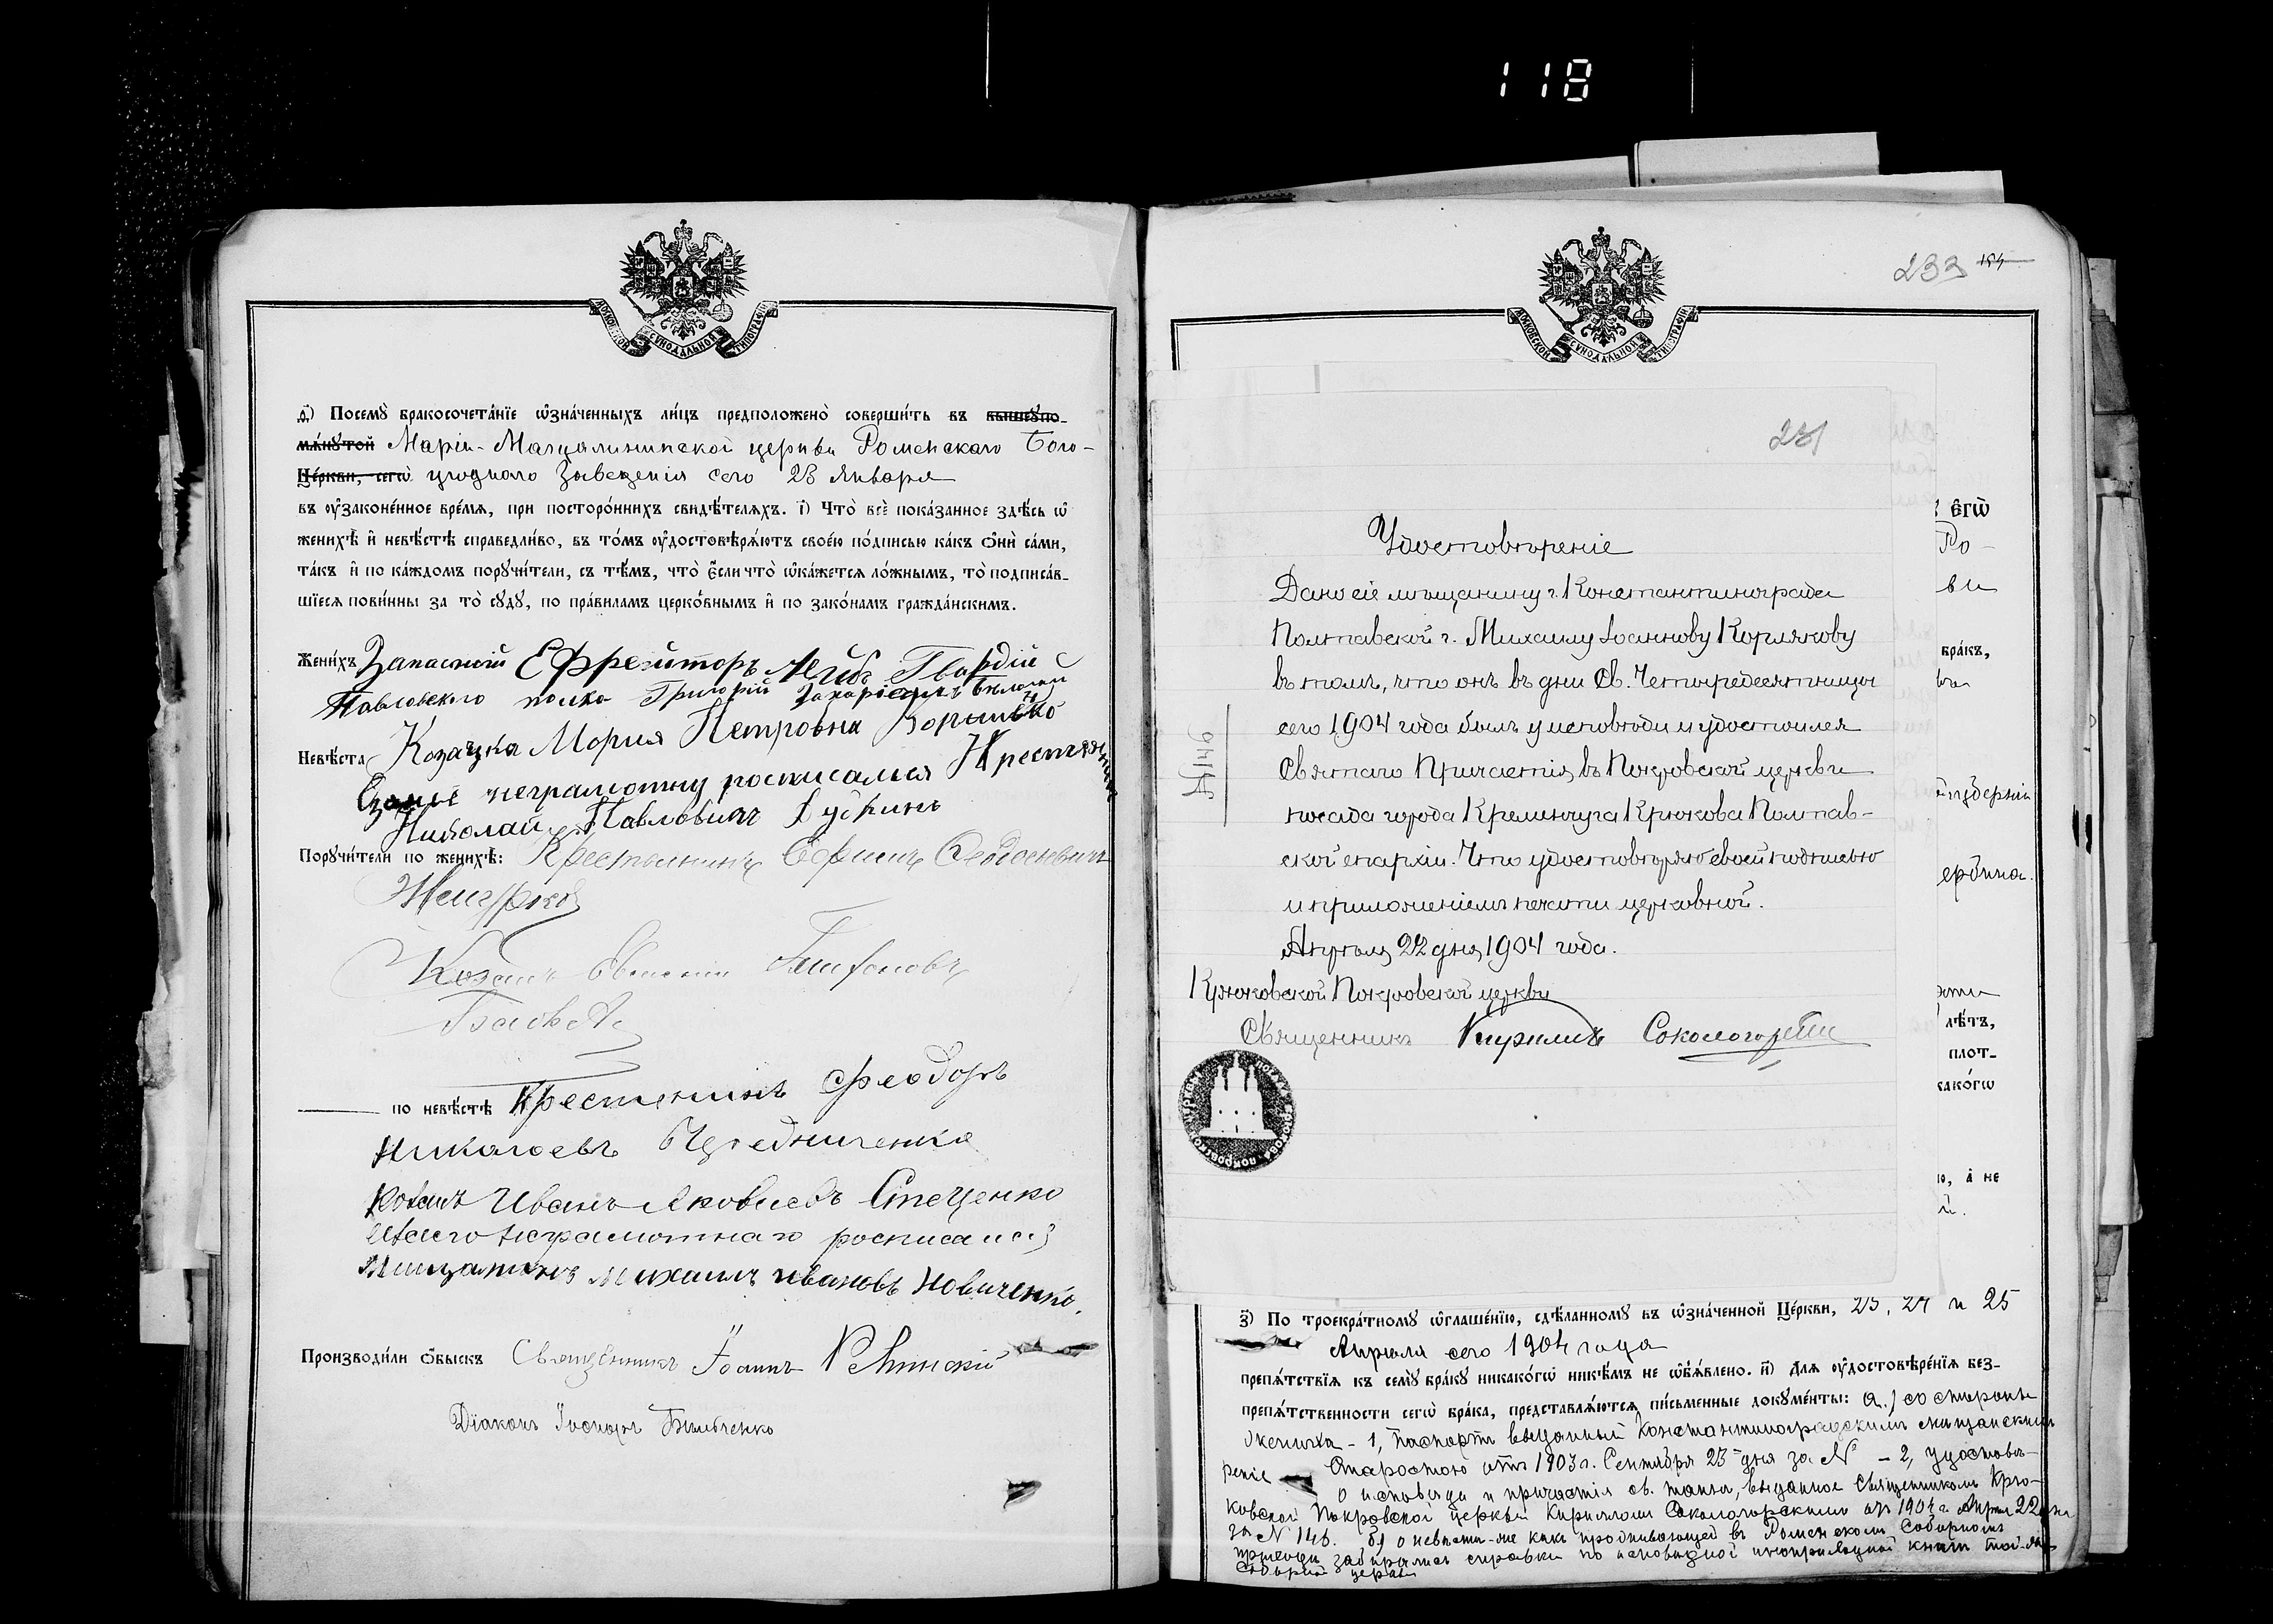 118
МОСКОВСКОЙ СѴНОДАЛЬНОЙ ТИПОГРАФІИ
ѳ҃) Посемꙋ̀ бракосочета́нїе ѡ҆зна́ченныхъ ли́цъ предположено̀ соверши́ть въ вышеꙋпо-
мѧ́нꙋтой Маріи-Магдалининской церкви Роменскаго Бого-
Це́ркви, сегѡ̀ угоднаго Заведенія сего 23 Января
въ ᲂу҆законе́нное вре́мѧ, при посторо́ннихъ свидѣ́телѧхъ. і҃) Что̀ всѐ пока́занное здѣ́сь ѡ҆
женихѣ̀ и҆ невѣ́стѣ справедли́во, въ то́мъ ᲂу҆достовѣрѧ́ютъ свое́ю по́дписью ка́къ ѻ҆нѝ са́ми,
та́къ и҆ по ка́ждомъ порꙋчи́тели, съ тѣ́мъ, что̀ є҆́сли что̀ ѡ҆ка́жетсѧ ло́жнымъ, то̀ подписа́в-
шїесѧ пови́нны за то̀ сꙋдꙋ̀, по пра́виламъ церко́внымъ и҆ по зако́намъ гражда́нскимъ.
Жени́хъ Запасний Ефрейторъ Лейбъ Гвардіи
Павловского полка Григорій Захаріевичъ
Невѣ́ста Козачка Мория Петровна
неграмотну росписался Крестянин
Николай Павловичъ
Порꙋчи́тели по женихѣ̀: Крестьянинъ Ефимъ
Козакъ
по невѣ́стѣ Крестенинъ Феодоръ
Николаевъ Чередниченко
Козакъ Иванъ Яковлевъ Стеценко
неграмотнаго росписался
Мищанинъ Михаилъ Ивановъ Новиченко.
Производи́ли ѻ҆́быскъ Священникъ Іоаннъ
Діаконъ
233 184
МОСКОВСКОЙ СѴНОДАЛЬНОЙ ТИПОГРАФІИ
231
Удостовѣреніе
Дано сіе мѣщанину г. Константинограда
Полтавской г. Михаилу Іоаннову Корлякову
въ томъ, что онъ въ дни Св. Четыредесятницы
сего 1904 года былъ у исповѣди и удостоился
Святаго Причастія въ Покровской церкви
посада города Кременчуга Крюкова Полтав-
ской епархіи. Что удостовѣряю своей подписью
и приложеніемъ печати церковной.
Апрѣля 22 дня 1904 года.
№ 146
Крюковской Покровской церкви
Священникъ Кириллъ Сокологорскій
є҆гѡ̀
Ро-
ви
бра́къ,
губерніи
лѣ́тъ,
плот-
како́гѡ
ю, а҆ не
з҃) По троекра́тномꙋ ѡ҆глаше́нїю, сдѣ́ланномꙋ въ ѡ҆зна́ченной Це́ркви, 23, 24 и 25
Апрѣля сего 1904 года
препѧ́тствїѧ къ семꙋ̀ бра́кꙋ никако́гѡ никѣ́мъ не ѡ҆б̾ѧ́влено. и҃) Длѧ ᲂу҆достовѣре́нїѧ без-
препѧ́тственности сегѡ̀ бра́ка, представлѧ́ютсѧ пи́сьменные докꙋме́нты: а.) со стороны
жениха - 1, паспортъ выданный Константиноградскимъ мѣщанскимъ
Старостою отъ 1903 г. Сентября 23 дня за № - 2, удостовѣ-
реніе о исповѣди и причастія св. таинъ, выданное Священникомъ Крю-
ковской Покровской церкви Кирилломъ Сокологорскимъ отъ 1904 г. Апрѣля 22 дня
за № 146. б) о невѣсти-же какъ проживающей въ Роменскомъ Соборномъ
приходѣ забирались справки по исповѣдной и метрической книги той-же
Соборной церкви